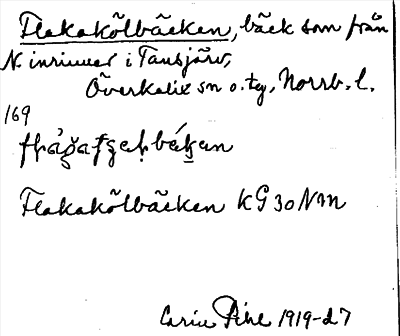 Flakakölbäcken, bäck som från
N inrinner i Tansjärv,
Överkalix sn o. tg, Norrb. l.
169
Flakakölbäcken KG 30 Nm
Carin Pihl 1919-27